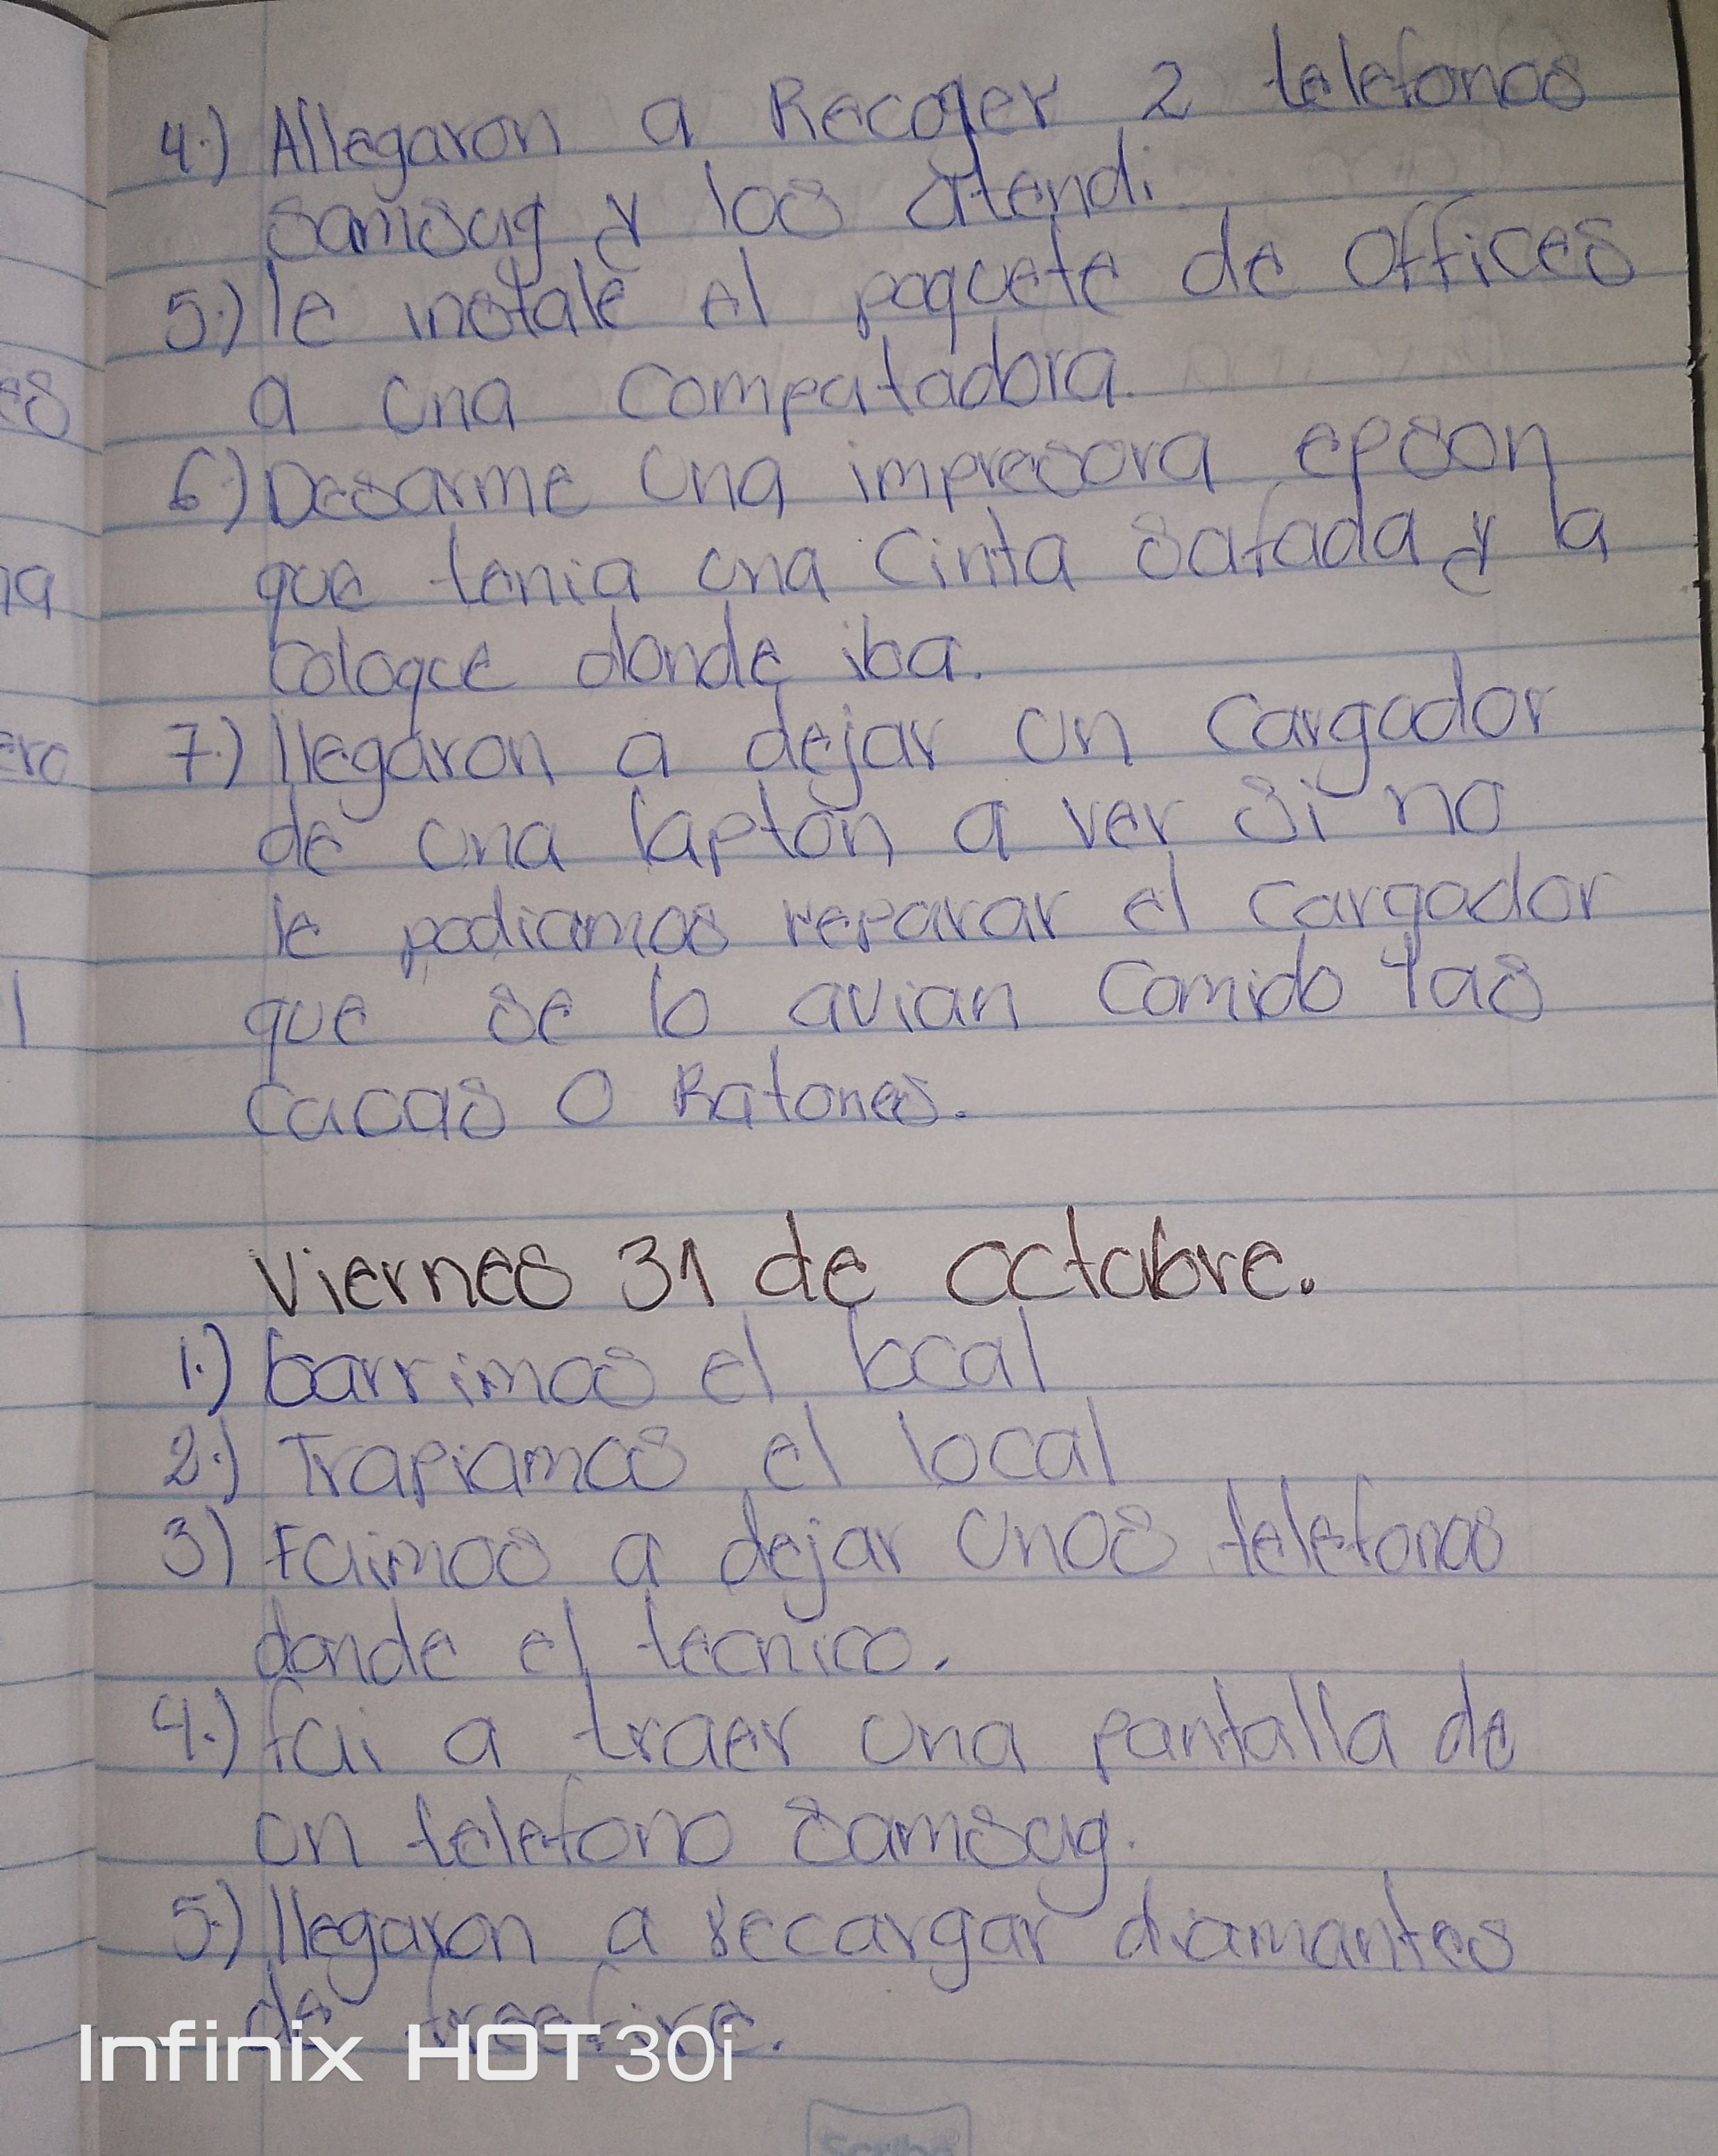 4.) Allegaron a Recoger 2 telefonos
samsug y los atendi
5.) le instale el paquete de offices
a una computadora.
6.) Desarme una impresora epson
que tenia una cinta safada y la
coloque donde iba.
7.) llegaron a dejar un cargador
de una lapton a ver si no
le podiamos reparar el cargador
que se lo avian comido las
cucas o Ratones.
Viernes 31 de octubre.
1.) barrimos el local
2.) Trapiamos el local
3) Fuimos a dejar unos telefonos
donde el tecnico.
4.) fui a traer una pantalla de
un telefono samsug.
5.) llegaron a recargar diamantes
de freefire.
Infinix HOT 30i
es
na
ero
l
Scribe